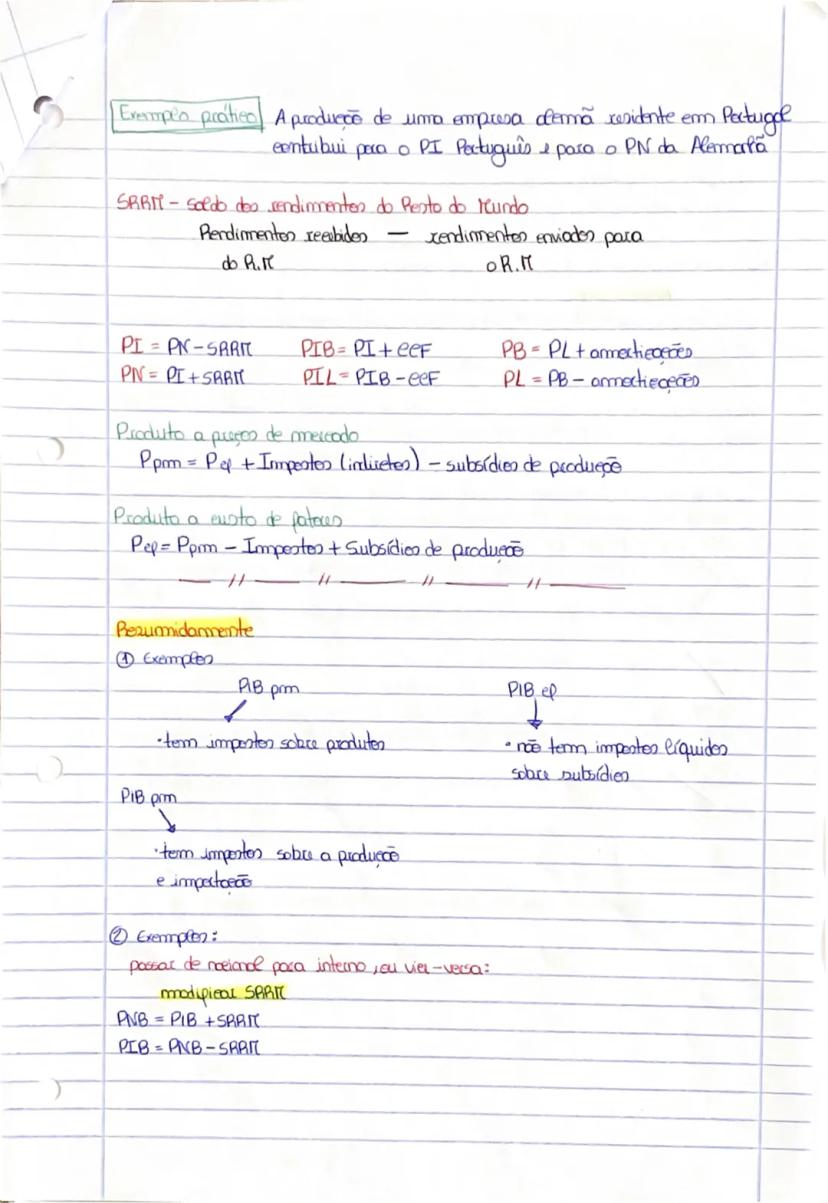 Exemplo prático A produção de uma empresa alemã residente em Portugal
contribui para o PI Português e para o PN da Alemanhã
SRRM - Saldo dos rendimentos do Resto do Mundo
Rendimentos recebidos — rendimentos enviados para
do R.M o R.M
PI = PN - SRRM PIB = PI + CCF PB = PL + amortizações
PN = PI + SRRM PIL = PIB - CCF PL = PB - amortizações
Produto a preços de mercado
Ppm = Pcf + Impostos (indiretos) - subsídios de produção
Produto a custo de fatores
Pcf = Ppm - Impostos + Subsídios de produção
— // — // — // — // —
Resumidamente
① Exemplos
PIB pm PIB cf
· tem impostos sobre produtos · não tem impostos líquidos
sobre subsídios
PIB pm
· tem impostos sobre a produção
e importação
② Exemplos:
passar de nacional para interno, ou vice-versa:
modificar SRRM
PNB = PIB + SRRM
PIB = PNB - SRRM